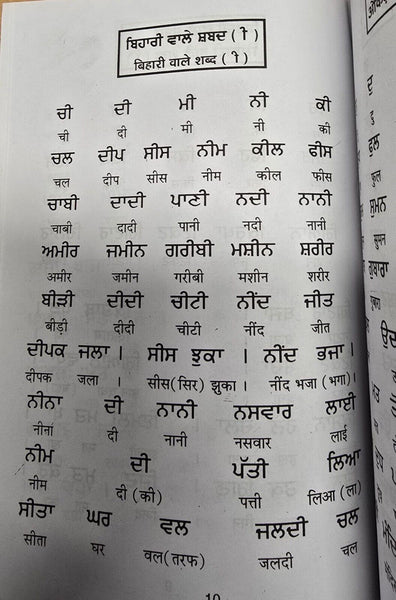 ਬਿਹਾਰੀ ਵਾਲੇ ਸ਼ਬਦ ( ੀ )
बिहारी वाले शब्द ( ी )
ਚੀ ਦੀ ਮੀ ਨੀ ਕੀ
ची दी मी नी की
ਚਲ ਦੀਪ ਸੀਸ ਨੀਮ ਕੀਲ ਫੀਸ
चल दीप सीस नीम कील फीस
ਚਾਬੀ ਦਾਦੀ ਪਾਣੀ ਨਦੀ ਨਾਨੀ
चाबी दादी पानी नदी नानी
ਅਮੀਰ ਜਮੀਨ ਗਰੀਬੀ ਮਸ਼ੀਨ ਸ਼ਰੀਰ
अमीर जमीन गरीबी मशीन शरीर
ਬੀੜੀ ਦੀਦੀ ਚੀਟੀ ਨੀਂਦ ਜੀਤ
बीड़ी दीदी चीटी नींद जीत
ਦੀਪਕ ਜਲਾ । ਸੀਸ ਝੁਕਾ । ਨੀਂਦ ਭਜਾ ।
दीपक जला । सीस (सिर) झुका । नींद भजा (भगा) ।
ਨੀਨਾ ਦੀ ਨਾਨੀ ਨਸਵਾਰ ਲਾਈ
नीना दी नानी नसवार लाई
ਨੀਮ ਦੀ ਪੱਤੀ ਲਿਆ
नीम दी (की) पत्ती लिआ (ला)
ਸੀਤਾ ਘਰ ਵਲ ਜਲਦੀ ਚਲ
सीता घर वल (तरफ) जलदी चल
ਫੁਲ
फुल
ਸੁਮਨ
सुमन